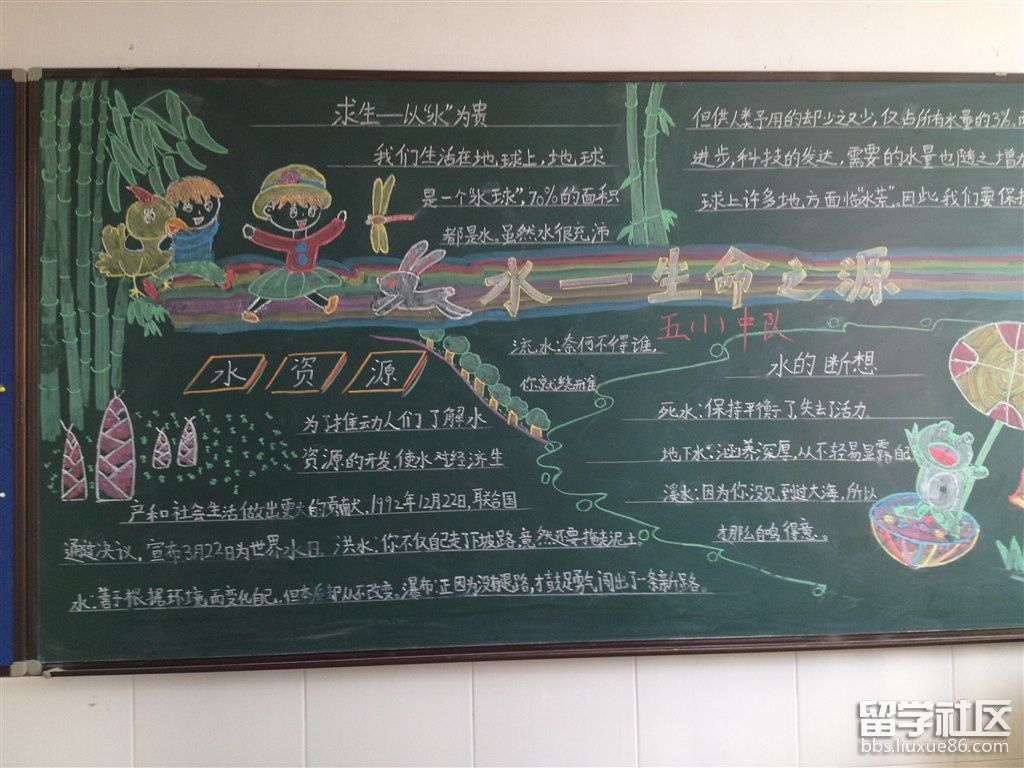 求生——以“水”为贵
我们生活在地球上,地球
是一个“水球”,70%的面积
都是水。虽然水很充沛
但供人类予用的却少之又少,仅占所有水量的3%。
进步,科技的发达,需要的水量也随之增
球上许多地方面临“水荒”。因此,我们要保
水—生命之源
五(1)中队
水资源
为了推动人们了解水
资源的开发,使水对经济生
产和社会生活做出更大的贡献,1992年12月22日,联合国
通过决议,宣布3月22日为世界水日。洪水:你不仅自己走下坡路,竟然还要拖走泥土。
水:善于根据环境而变化自己,但本质却从不改变。瀑布:正因为没有退路,才鼓足勇气闯出了一条新路。
流水:奈何不得谁,
你就绕开谁
水的断想
死水:保持平衡了,失去了活力
地下水:涵养深厚,从不轻易显露自
溪水:因为你没见到过大海,所以
才那么自鸣得意。
留学社区
bbs.liuxue86.com